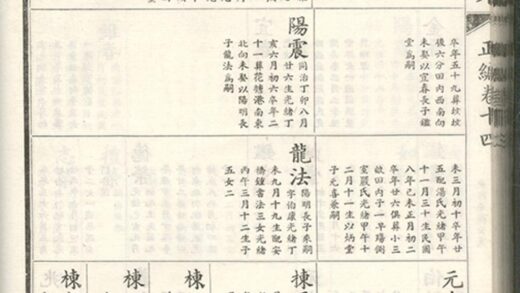 正編卷十四
卒年五十九葬墳
後六分田內西南向
未娶以宜春長子鑑
堂爲嗣
陽震
同治丁卯八月
廿六生光緒丁
亥六月初六卒年二
十一葬花塘港南東
北向未娶以陽明長
子龍法爲嗣
未三月初十卒年廿
五配湯氏光緒甲午
十一月三十生民國
八年己未正月初二
卒年廿六俱葬小三
畝田內子一早殤側
室嚴氏光緒甲午十
二月十一生以炳堂
子元喜兼嗣
龍法
陽明長子來嗣
字伯康光緒丁
未九月十九生配安
橋鍾書法三女光緒
丙午三月十二生子
五女二
元
棟
棟
棟
棟